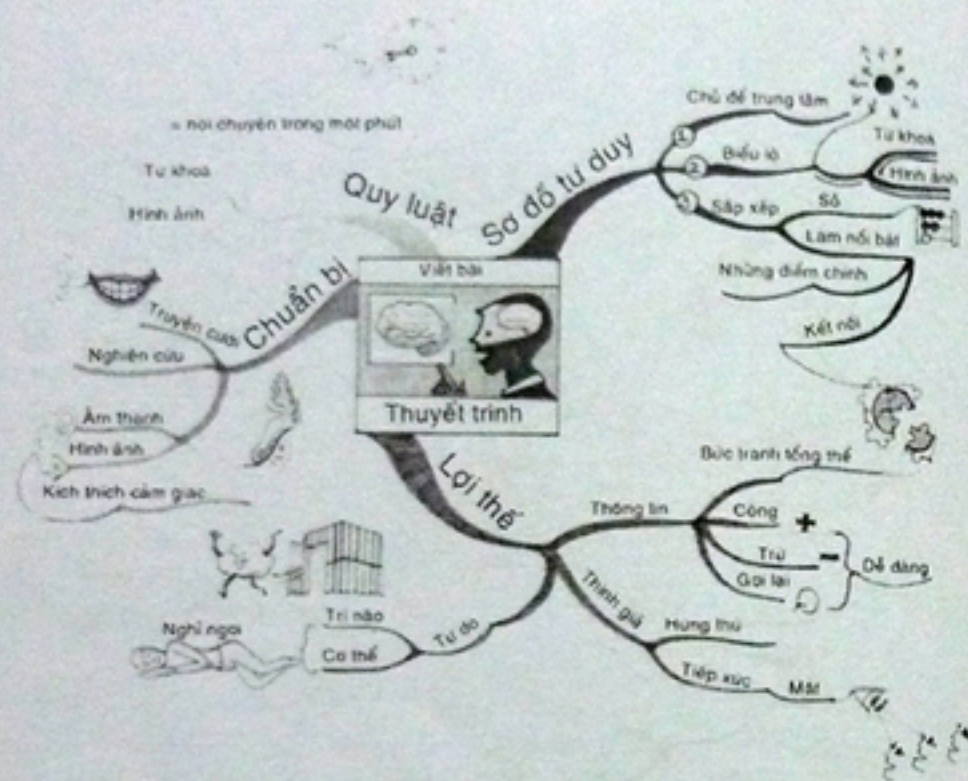 Viết bài
Thuyết trình
Quy luật
= nói chuyện trong một phút
Từ khoá
Hình ảnh
Sơ đồ tư duy
1.
Chủ đề trung tâm
2
Biểu lộ
Từ khoá
Hình ảnh
3
Sắp xếp
Số
Làm nổi bật
Những điểm chính
Kết nối
Chuẩn bị
Truyện cười
Nghiên cứu
Âm thanh
Hình ảnh
Kích thích cảm giác
Lợi thế
Thông tin
Bức tranh tổng thể
Cộng +
Trừ -
Gọi lại
Dễ dàng
Thính giả
Hứng thú
Tiếp xúc
Mắt
Tự do
Trí não
Cơ thể
Nghỉ ngơi